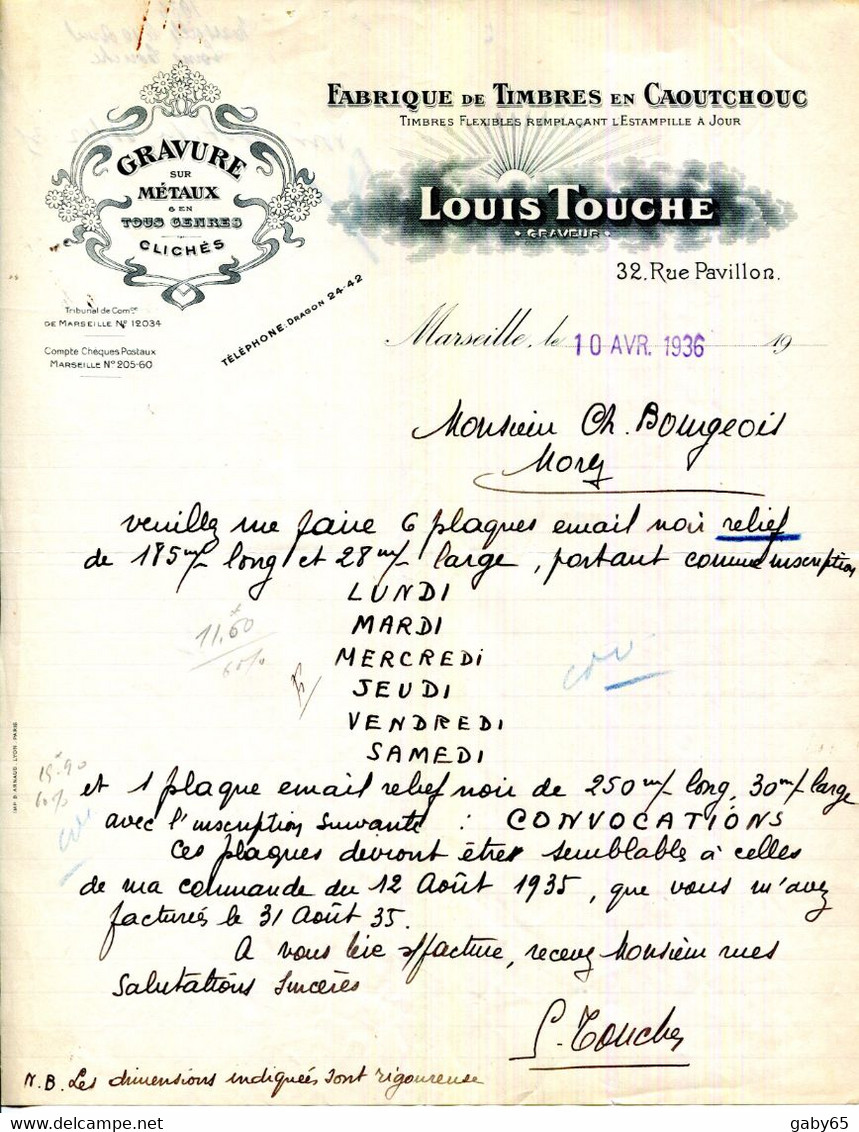 FABRIQUE DE TIMBRES EN CAOUTCHOUC
TIMBRES FLEXIBLES REMPLAÇANT L'ESTAMPILLE À JOUR
GRAVURE
SUR
MÉTAUX
& EN
TOUS GENRES
CLICHÉS
LOUIS TOUCHE
GRAVEUR
32. Rue Pavillon.
Tribunal de Comce
DE MARSEILLE No 12034
Compte Chèques Postaux
MARSEILLE No 205-60
TÉLÉPHONE: DRAGON 24-42
Marseille, le 10 AVR. 1936 19
Monsieur Ch. Bourgeois
Morez
veuillez me faire 6 plaques email noir relief
de 185 m/- long et 28 m/- large, portant comme inscription
LUNDI
MARDI
MERCREDI
JEUDI
VENDREDI
SAMEDI
11.60
60%
19.90
60%
et 1 plaque email relief noir de 250 m/- long, 30 m/- large
avec l'inscription suivante : CONVOCATIONS
Ces plaques devront être semblable à celles
de ma commande du 12 Août 1935, que vous m'avez
facturées le 31 Août 35.
A vous lire s/facture, recevez Monsieur mes
Salutations Sincères
L. Touche
N.B. Les dimensions indiquées sont rigoureuse
IMP. B. ARNAUD. LYON-PARIS
gaby65